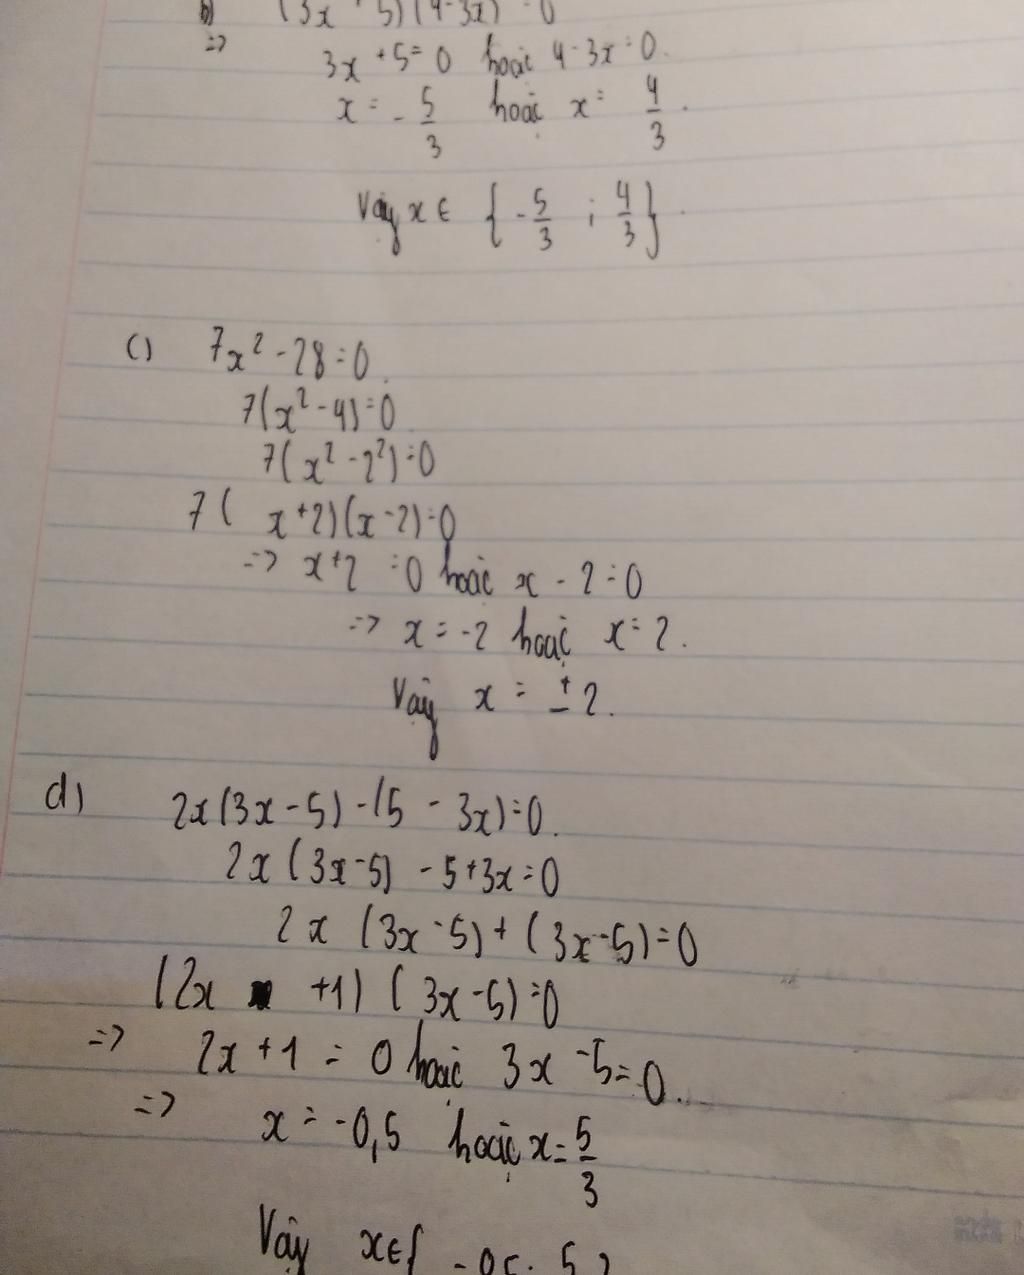 b) (3x + 5)(4-3x) = 0
=> 3x + 5 = 0 hoặc 4 - 3x = 0.
x = - 5/3 hoặc x = 4/3.
Vậy x ∈ { - 5/3 ; 4/3 }.
c) 7x² - 28 = 0.
7(x² - 4) = 0
7(x² - 2²) = 0
7(x + 2)(x - 2) = 0
=> x + 2 = 0 hoặc x - 2 = 0
=> x = -2 hoặc x = 2.
Vậy x = ± 2.
d) 2x(3x - 5) - (5 - 3x) = 0.
2x(3x - 5) - 5 + 3x = 0
2x (3x - 5) + (3x - 5) = 0
(2x + 1) (3x - 5) = 0
=> 2x + 1 = 0 hoặc 3x - 5 = 0.
=> x = -0,5 hoặc x = 5/3
Vậy x ∈ {